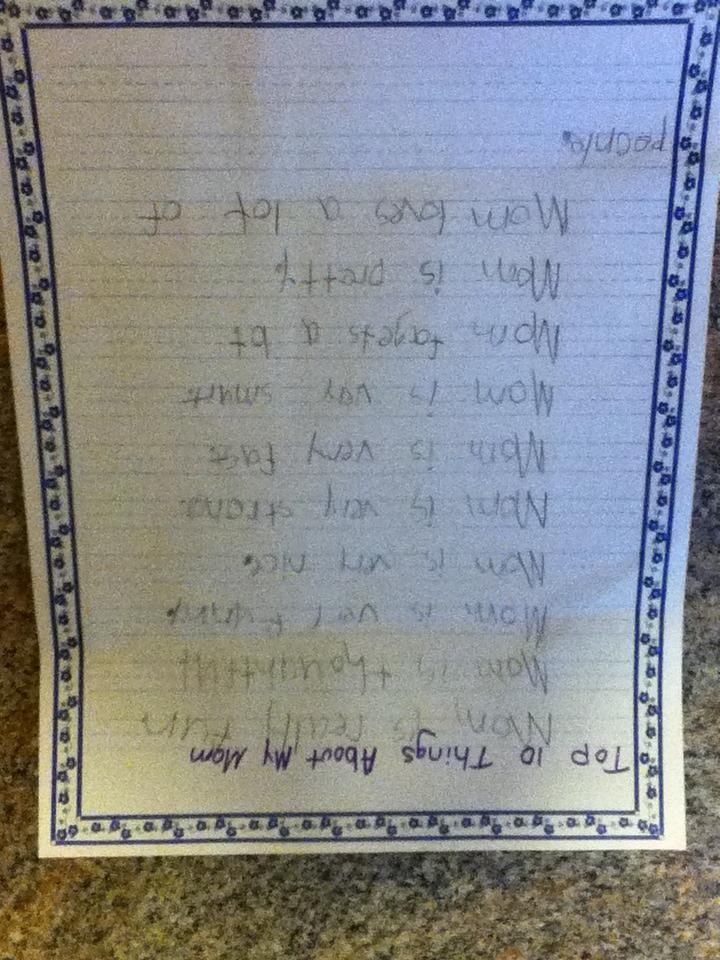 Top 10 Things About My Mom
Mom is really fun
Mom is thoughtfull
Mom is very funny.
Mom is very nice.
Mom is very strong.
Mom is very fast
Mom is very smart
Mom fogets a bt
Mom is pretty
Mom loves a lot of
people.